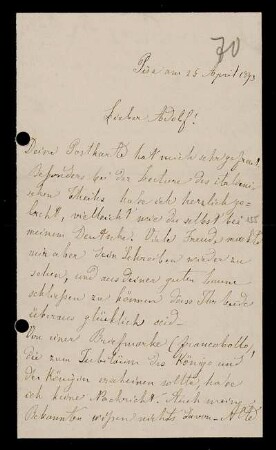 70
Pisa am 25 April 1893
Lieber Adolf!
Deine Postkarte hat mich sehr gefreut.
Besonders bei der Lecture des italieni-
schen Theils habe ich herzlich ge-
lacht, vielleicht wie du selbst bei
meinem Deutschen. Viele Freude machte
mir aber dein Schreiben wieder zu
sehen, und aus deiner guten Laune
schliessen zu können dass Ihr beide
überaus glücklich seid.
Von einer Briefmarke (francobollo)
die zum Jubiläum des Königs und
der Königin erscheinen sollte, habe
ich keine Nachricht. Auch meine
Bekannten wissen nichts davon.